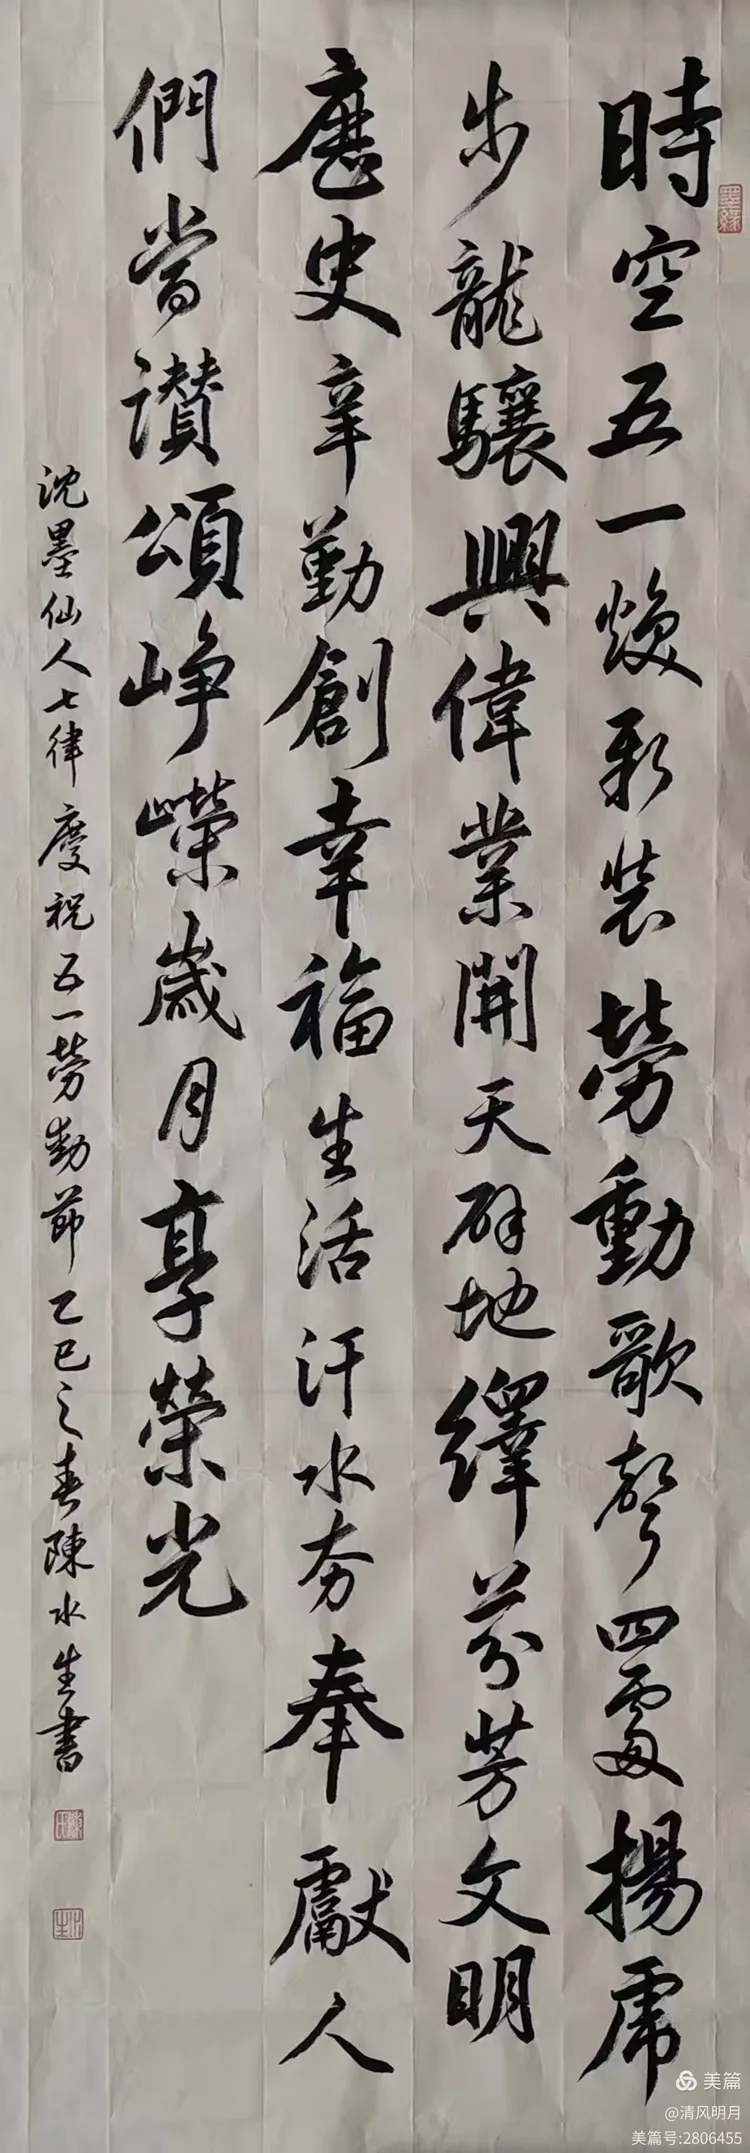 時空五一煥新裝勞動歌聲四處揚虎
步龍驤興偉業開天辟地繹芬芳文明
歷史辛勤創幸福生活汗水夯奉獻人
們當讚頌崢嶸歲月享榮光
沈墨仙人七律慶祝五一勞動節乙巳之春陳水生書
墨緣
美篇
@清风明月
美篇号:2806455